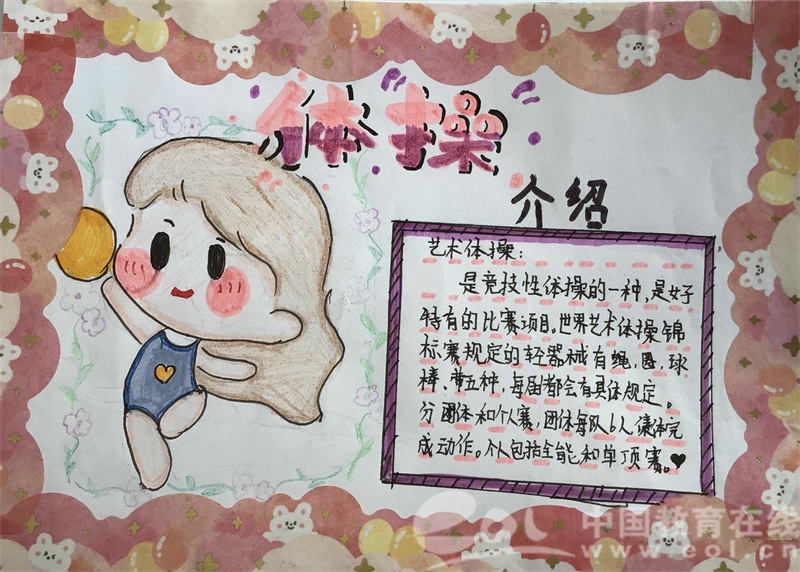 体操
介绍
艺术体操:
是竞技性体操的一种,是女子
特有的比赛项目。世界艺术体操锦
标赛规定的轻器械有绳,圈,球
棒、带五种,每届都会有具体规定。
分团体和个人赛,团体每队6人集体完
成动作。个人包括全能和单项赛。
eol 中国教育在线
www.eol.cn